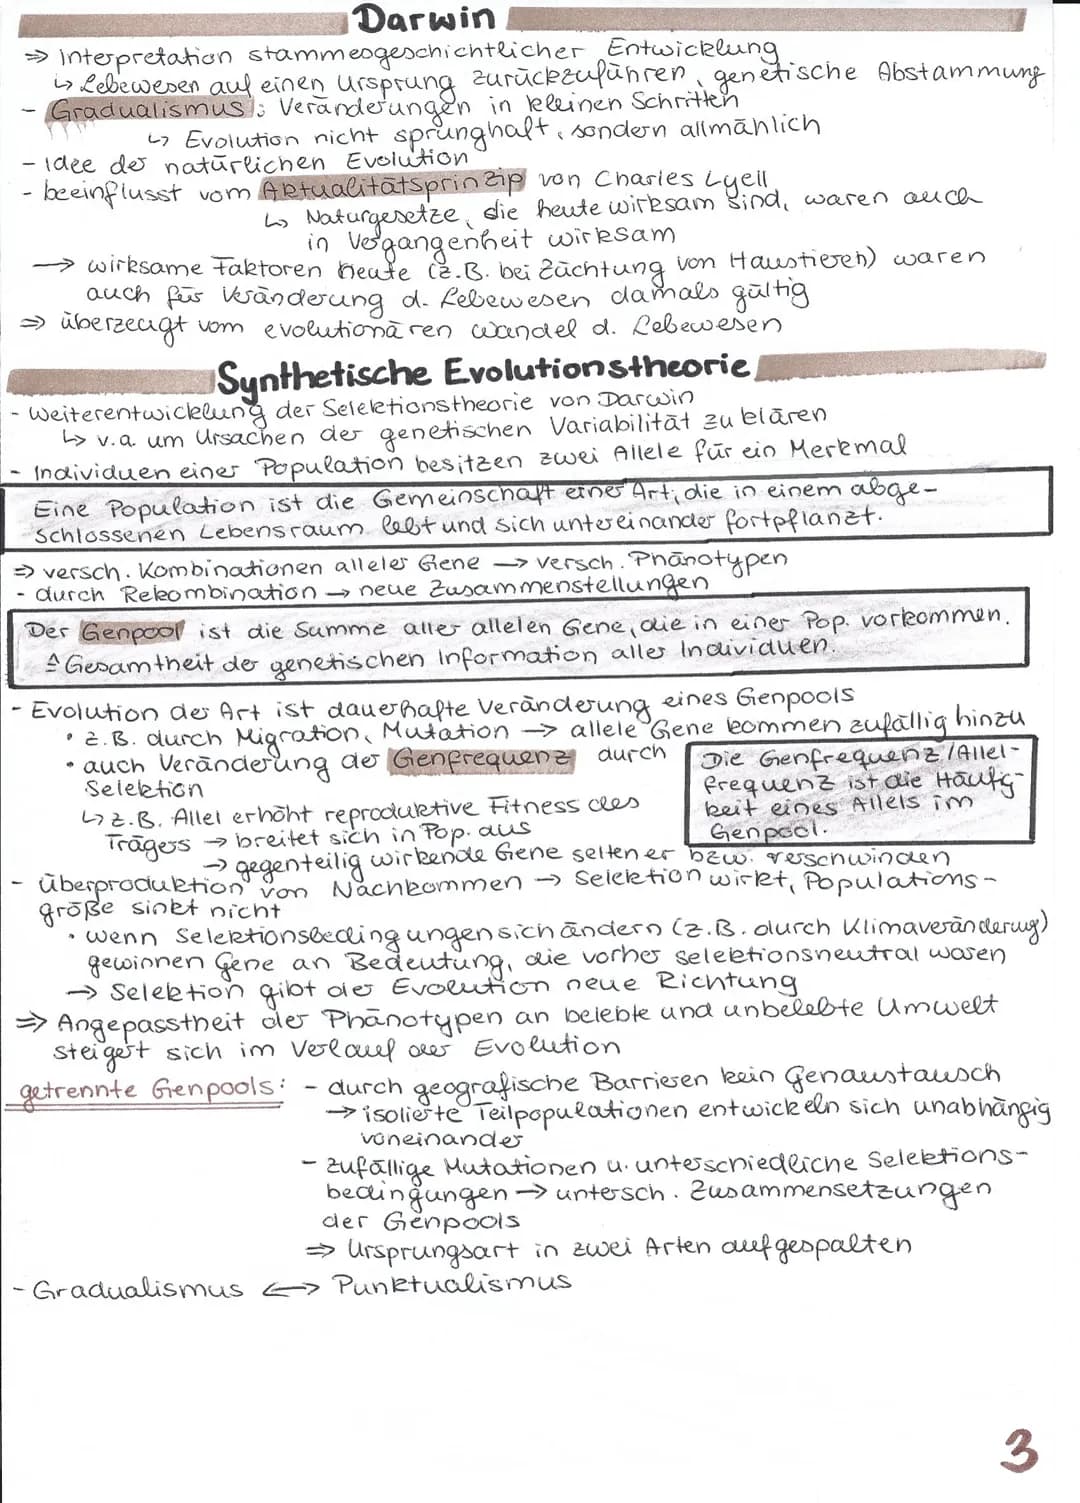 Darwin
⇒ Interpretation stammesgeschichtlicher Entwicklung
↳ Lebewesen auf einen Ursprung zurückzuführen, genetische Abstammung
- Gradualismus: Veränderungen in kleinen Schritten
↳ Evolution nicht sprunghaft, sondern allmählich
- Idee der natürlichen Evolution
- beeinflusst vom Aktualitätsprinzip von Charles Lyell
↳ Naturgesetze, die heute wirksam sind, waren auch
in Vergangenheit wirksam
→ wirksame Faktoren heute (z.B. bei Züchtung von Haustieren) waren
auch für Veränderung d. Lebewesen damals gültig
⇒ überzeugt vom evolutionären Wandel d. Lebewesen
Synthetische Evolutionstheorie
- Weiterentwicklung der Selektionstheorie von Darwin
↳ v.a. um Ursachen der genetischen Variabilität zu klären
- Individuen einer Population besitzen zwei Allele für ein Merkmal
Eine Population ist die Gemeinschaft einer Art, die in einem abge-
schlossenen Lebensraum lebt und sich untereinander fortpflanzt.
⇒ versch. Kombinationen alleler Gene → versch. Phänotypen
- durch Rekombination → neue Zusammenstellungen
Der Genpool ist die Summe aller allelen Gene, die in einer Pop. vorkommen.
≙ Gesamtheit der genetischen Information aller Individuen.
- Evolution der Art ist dauerhafte Veränderung eines Genpools
• z.B. durch Migration, Mutation → allele Gene kommen zufällig hinzu
• auch Veränderung der Genfrequenz durch
Selektion
↳ z.B. Allel erhöht reproduktive Fitness des
Trägers → breitet sich in Pop. aus
→ gegenteilig wirkende Gene seltener bzw. verschwinden
Die Genfrequenz/Allel-
frequenz ist die Häufig-
keit eines Allels im
Genpool.
- Überproduktion von Nachkommen → Selektion wirkt, Populations-
größe sinkt nicht
• wenn Selektionsbedingungen sich ändern (z.B. durch Klimaveränderug)
gewinnen Gene an Bedeutung, die vorher selektionsneutral waren
→ Selektion gibt der Evolution neue Richtung
⇒ Angepasstheit der Phänotypen an belebte und unbelebte Umwelt
steigert sich im Verlauf der Evolution
getrennte Genpools: - durch geografische Barrieren kein Genaustausch
→ isolierte Teilpopulationen entwickeln sich unabhängig
voneinander
- zufällige Mutationen u. unterschiedliche Selektions-
bedingungen → untersch. Zusammensetzungen
der Genpools
⇒ Ursprungsart in zwei Arten aufgespalten
- Gradualismus ↔ Punktualismus
3